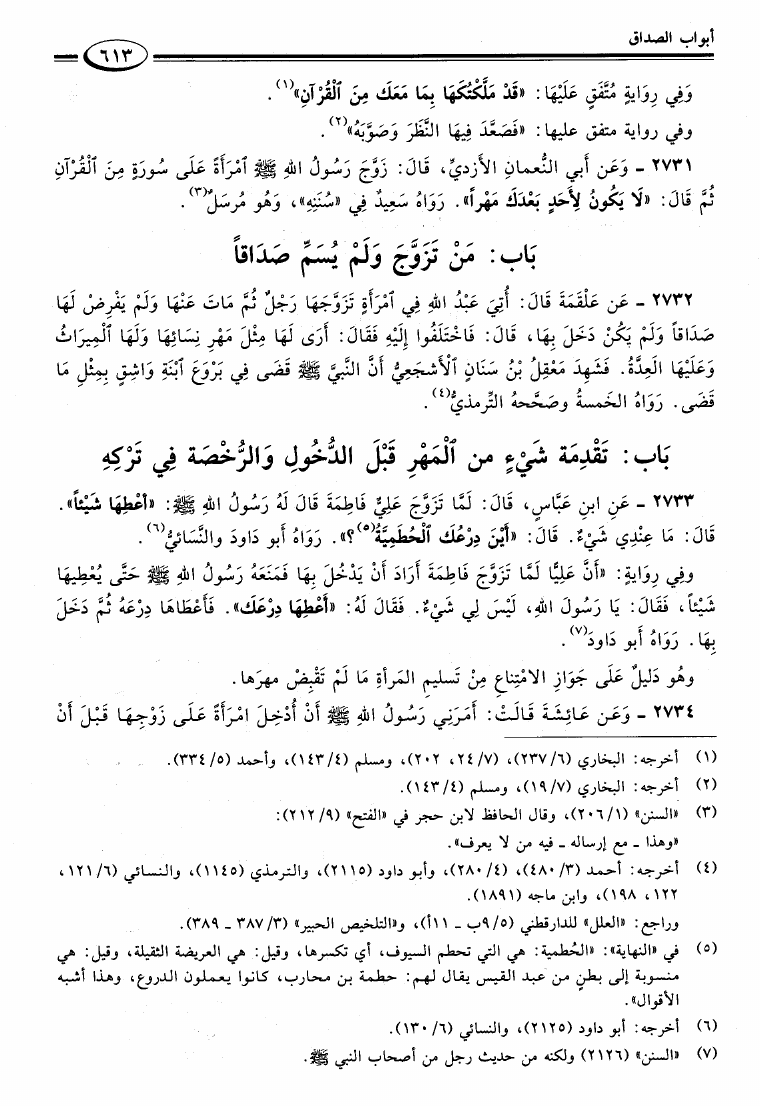 أبواب الصداق
٦١٣
وَفِي رِوَايَةٍ مُتَّفَقٍ عَلَيْهَا: «قَدْ مَلَّكْتُكَهَا بِمَا مَعَكَ مِنَ الْقُرْآنِ»(١).
وفي رواية متفق عليها: «فَصَعَّدَ فِيهَا النَّظَرَ وَصَوَّبَهُ»(٢).
٢٧٣١ - وَعَن أبي النُّعمانِ الأزديِّ، قَالَ: زَوَّجَ رَسُولُ اللهِ ﷺ امْرَأَةً عَلَى سُورَةٍ مِنَ الْقُرْآنِ
ثُمَّ قَالَ: «لَا يَكُونُ لِأَحَدٍ بَعْدَكَ مَهْراً». رَوَاهُ سَعِيدٌ فِي «سُنَنِهِ»، وَهُو مُرسَلٌ(٣).
بَاب: مَنْ تَزَوَّجَ وَلَمْ يُسَمِّ صَدَاقاً
٢٧٣٢ - عَن عَلْقَمَةَ قَالَ: أُتِيَ عَبْدُ اللهِ فِي امْرَأَةٍ تَزَوَّجَهَا رَجُلٌ ثُمَّ مَاتَ عَنْهَا وَلَمْ يَفْرِضْ لَهَا
صَدَاقاً وَلَمْ يَكُنْ دَخَلَ بِهَا، قَالَ: فَاخْتَلَفُوا إِلَيْهِ فَقَالَ: أَرَى لَهَا مِثْلَ مَهْرِ نِسَائِهَا وَلَهَا الْمِيرَاثُ
وَعَلَيْهَا العِدَّةُ. فَشَهِدَ مَعْقِلُ بْنُ سَنَانٍ الْأَشْجَعِيُّ أَنَّ النَّبيَّ ﷺ قَضَى فِي بَرْوَعَ ابْنَةِ وَاشِقٍ بِمِثْلِ مَا
قَضَى. رَوَاهُ الخمسةُ وصَحَّحهُ التِّرمذيُّ(٤).
بَاب: تَقْدِمَة شَيْءٍ من الْمَهْرِ قَبْلَ الدُّخُولِ وَالرُّخْصَة فِي تَرْكِهِ
٢٧٣٣ - عَنِ ابنِ عَبَّاسٍ، قَالَ: لَمَّا تَزَوَّجَ عَلِيٌّ فَاطِمَةَ قَالَ لَهُ رَسُولُ اللهِ ﷺ: «أَعْطِهَا شَيْئاً».
قَالَ: مَا عِنْدِي شَيْءٌ. قَالَ: «أَيْنَ دِرْعُكَ الْحُطَمِيَّةُ(٥)؟». رَوَاهُ أبو دَاودَ والنَّسَائيُّ(٦).
وفِي رِوَايَةٍ: «أَنَّ عَلِيًّا لَمَّا تَزَوَّجَ فَاطِمَةَ أَرَادَ أَنْ يَدْخُلَ بِهَا فَمَنَعَهُ رَسُولُ اللهِ ﷺ حَتَّى يُعْطِيهَا
شَيْئاً، فَقَالَ: يَا رَسُولَ اللهِ، لَيْسَ لِي شَيْءٌ. فَقَالَ لَهُ: «أَعْطِهَا دِرْعَكَ». فَأَعْطَاهَا دِرْعَهُ ثُمَّ دَخَلَ
بِهَا. رَوَاهُ أبو دَاودَ(٧).
وَهُو دَلِيلٌ عَلَى جَوَازِ الامْتِنَاعِ مِنْ تَسليمِ المَرأةِ مَا لَمْ تَقْبِضْ مهرَها.
٢٧٣٤ - وَعَن عَائِشَةَ قَالَتْ: أَمَرَنِي رَسُولُ اللهِ ﷺ أَنْ أُدْخِلَ امْرَأَةً عَلَى زَوْجِهَا قَبْلَ أَنْ
(١) أخرجه: البخاري (٢٣٧/٦)، (٢٤/٧، ٢٠٢)، ومسلم (١٤٣/٤)، وأحمد (٣٣٤/٥).
(٢) أخرجه: البخاري (١٩/٧)، ومسلم (١٤٣/٤).
(٣) «السنن» (٢٠٦/١)، وقال الحافظ لابن حجر في «الفتح» (٢١٢/٩):
«وهذا - مع إرساله - فيه من لا يعرف».
(٤) أخرجه: أحمد (٤٨٠/٣)، (٢٨٠/٤)، وأبو داود (٢١١٥)، والترمذي (١١٤٥)، والنسائي (١٢١/٦،
١٢٢، ١٩٨)، وابن ماجه (١٨٩١).
وراجع: «العلل» للدارقطني (٩/٥ب - ١١أ)، و«التلخيص الحبير» (٣٨٧/٣ - ٣٨٩).
(٥) في «النهاية»: «الحُطمية: هي التي تحطم السيوف، أي تكسرها، وقيل: هي العريضة الثقيلة، وقيل: هي
منسوبة إلى بطنٍ من عبد القيس يقال لهم: حطمة بن محارب، كانوا يعملون الدروع، وهذا أشبه
الأقوال».
(٦) أخرجه: أبو داود (٢١٢٥)، والنسائي (١٣٠/٦).
(٧) «السنن» (٢١٢٦) ولكنه من حديث رجل من أصحاب النبي ﷺ.